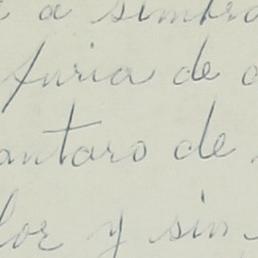 a sombra
furia de
antaro de
lor y sin